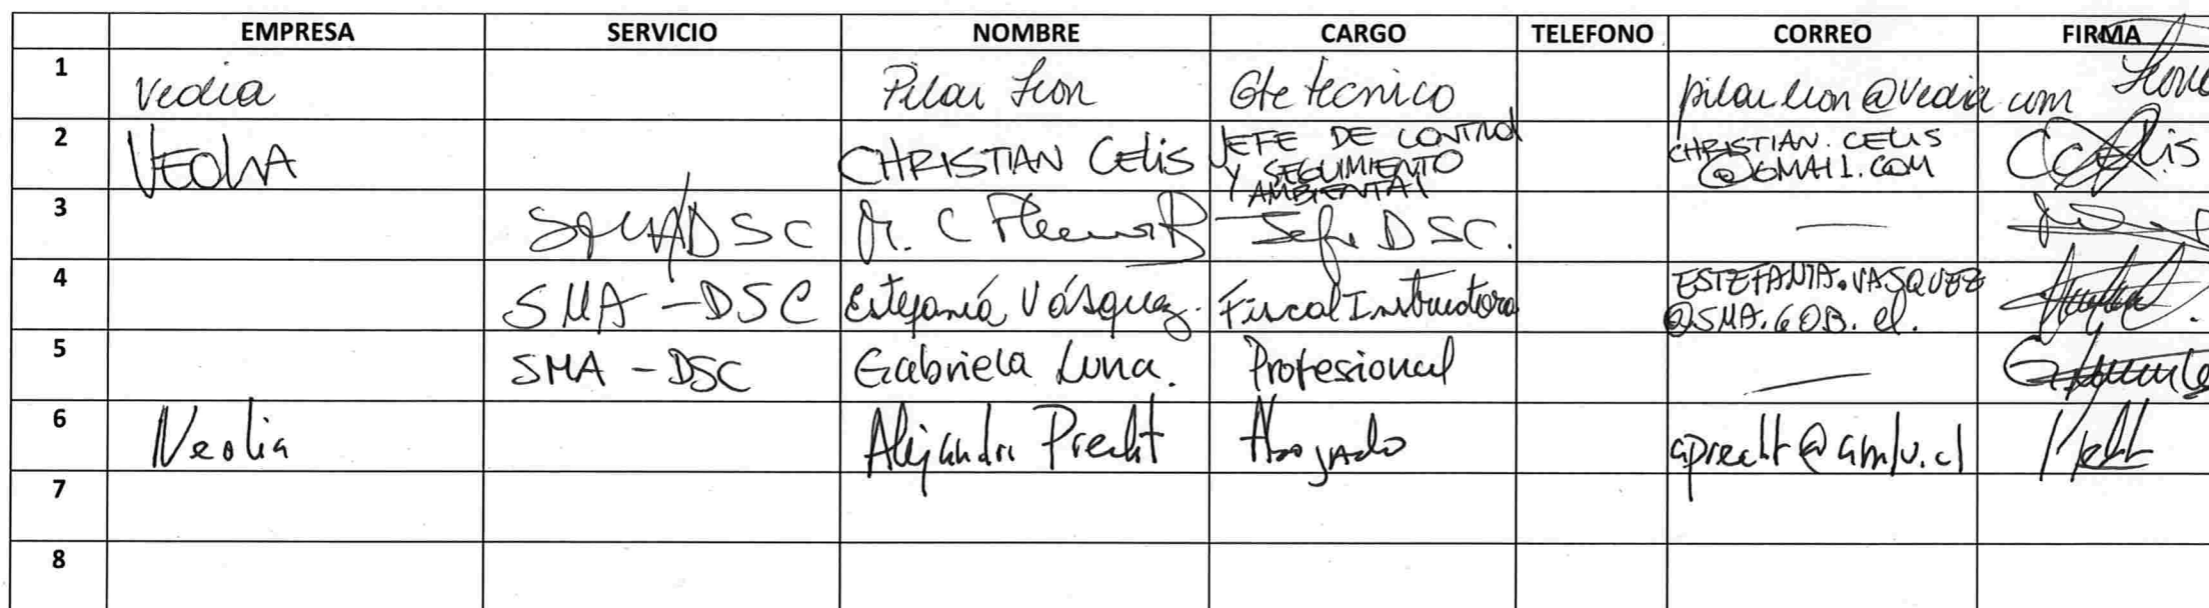 EMPRESA SERVICIO NOMBRE CARGO TELEFONO CORREO FIRMA
1 Veolia Pilar Leon Gte tecnico pilar.leon@veolia.com
2 VEOLIA CHRISTIAN CELIS JEFE DE CONTROL Y SEGUIMIENTO AMBIENTAL CHRISTIAN.CELIS @GMAIL.COM CCelis
3 SMA/DSC M. C Jefe DSC. —
4 SMA - DSC Estefanía Vásquez. Fiscal Instructora ESTEFANIA.VASQUEZ @SMA.GOB.cl.
5 SMA - DSC Gabriela Luna. Profesional —
6 Veolia Alejandro Precht Abogado
7
8